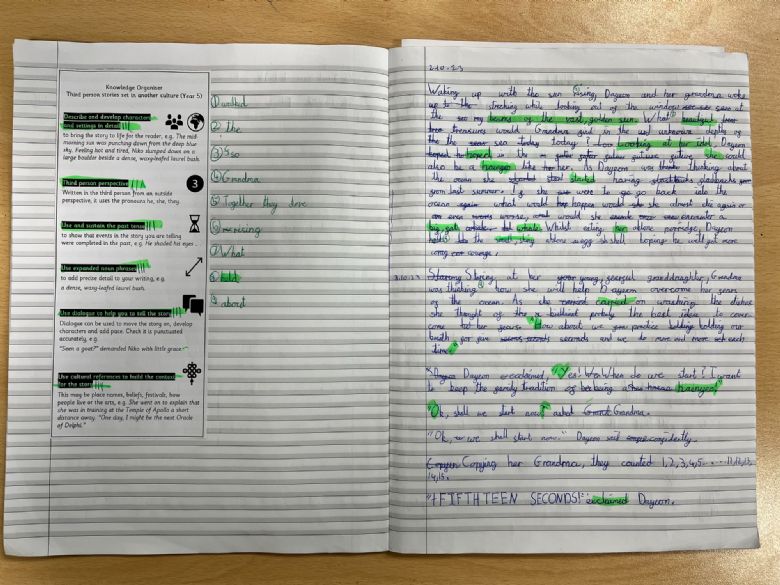 Knowledge Organiser
Third person stories set in another culture (Year 5)
Describe and develop characters
and settings in detail
to bring the story to life for the reader, e.g. The mid-
morning sun was punching down from the deep blue
sky. Feeling hot and tired, Niko slumped down on a
large boulder beside a dense, waxy-leafed laurel bush.
Third person perspective
3
Written in the third person from an outside
perspective, it uses the pronouns he, she, they.
Use and sustain the past tense
to show that events in the story you are telling
were completed in the past, e.g. He shaded his eyes...
Use expanded noun phrases
to add precise detail to your writing, e.g.
a dense, waxy-leafed laurel bush.
Use dialogue to help you to tell the story
Dialogue can be used to move the story on, develop
characters and add pace. Check it is punctuated
accurately, e.g.
"Seen a goat?" demanded Niko with little grace.
Use cultural references to build the context
for the story
This may be place names, beliefs, festivals, how
people live or the arts, e.g. She went on to explain that
she was in training at the Temple of Apollo a short
distance away. "One day, I might be the next Oracle
of Delphi."
② the
③ Iso
④ Grandma
⑤ Together they dove
⑦ What
⑧ hold
⑨ about
2.10.23
Waking up with the sun rising, Dayeon and her grandma woke
up to the streching while looking out of the window seen at
the sea my beams of the vast, golden sun. What
treasures would Grandma find in the unknown depths of
the sea today? Looking at her idol, Dayeon
hoped in the future she could
also be a haenyeo like her. As Dayeon was thinking about
the ocean she started having flashbacks
from last summer. If she were to go back into the
ocean again what would happen would she almost die again or
even worse, would she encounter a
big, fat whale. Whilst eating her abalone porridge, Dayeon
held the abalone egg shell hoping he will get more
long
3.10.23 Staring at her young, graceful granddaughter, Grandma
was thinking how she will help Dayeon overcome her fears
of the ocean. As she carried on washing the dishes
she thought of the brilliant probably the best idea to over
come her fears. "How about we practice holding our
breath for five seconds and we do more and more each
time."
Dayeon exclaimed, "Yes! When do we start? I want
to keep the family tradition of being a haenyeo!"
"Ok, shall we start now?" asked Grandma.
"Ok, we shall start now." Dayeon said confidently.
Copying her Grandma, they counted 1,2,3,4,5..... 11,12,13,
14,15.
"FIFTHTEEN SECONDS!" exclaimed Dayeon.